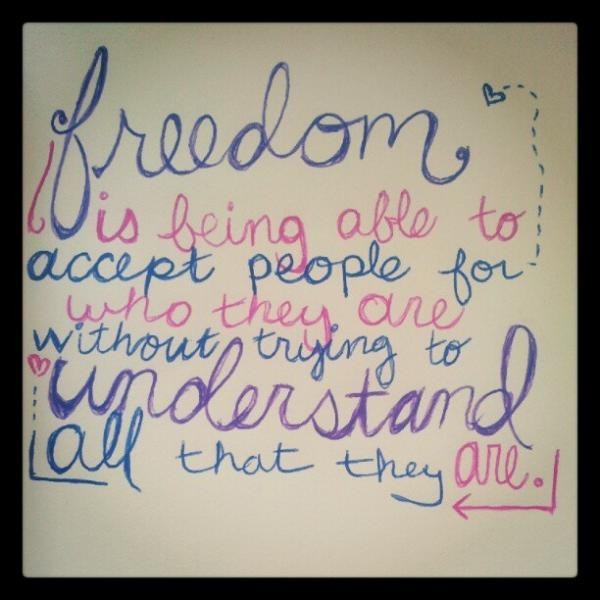 freedom
is being able to
accept people for
who they are
without trying to
understand
all that they are.